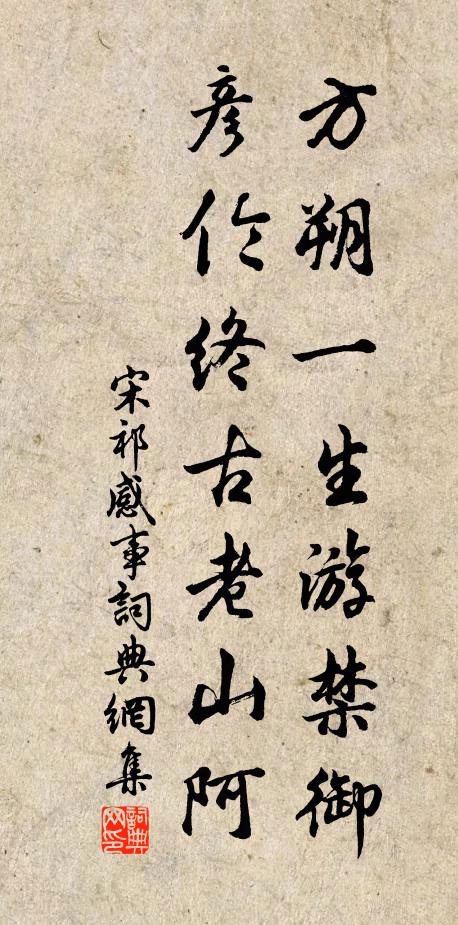 方朔一生游禁御
彦伦终古老山阿
宋祁感事詞典網集
詞典网印